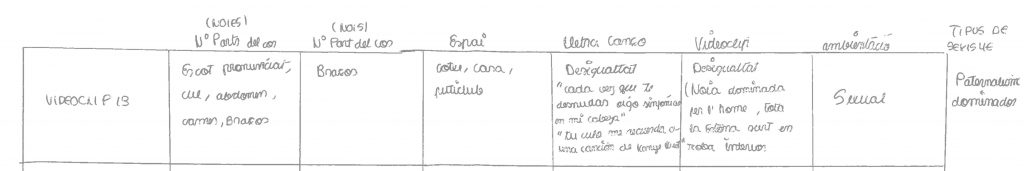 (NOIES)
Nº Parts del cos
(NOIS)
Nº Part del cos
Espai
Lletra Canço
Videoclip
ambientació
TIPUS DE
SEXISME
VIDEOCLIP 13
Escot pronunciat,
cul, abdomen,
cames, Braços
Braços
cotxe, casa,
puticlub
Desigualtat
"cada vez que te
desnudas oigo sinfonías
en mi cabeza"
"Tu culo me recuerda a
una canción de Kanye West"
Desigualtat
(Noia dominada
per l'home, tota
la estona surt en
roba interior
Sexual
Paternalism
dominador